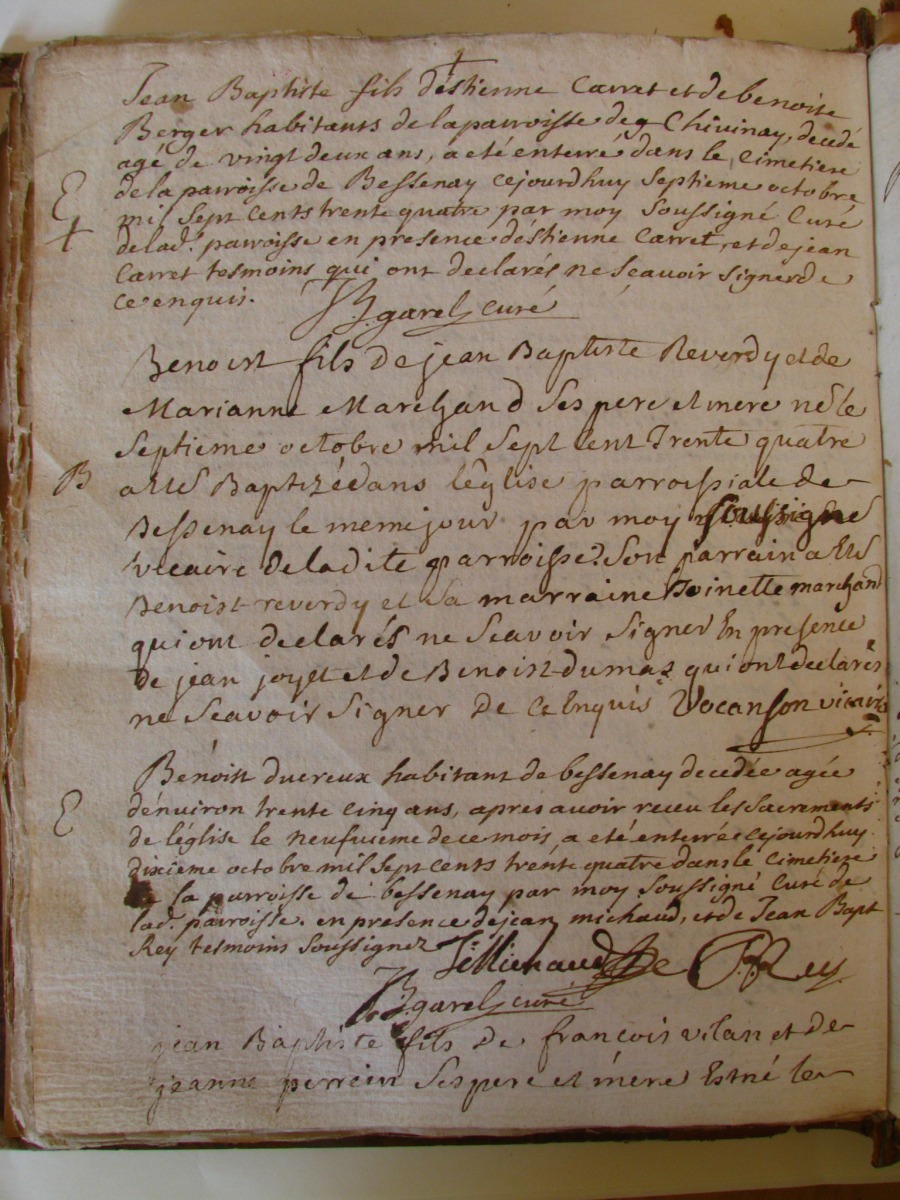 Jean Baptiste fils d'éstienne Carret et de benoite
Berger habitants de la parroisse de Chivinay, decedé
agé de vingt deux ans, a eté enterré dans le cimetiere
de la parroisse de Bessenay cejourdhuy septieme octobre
E
mil sept cents trente quatre par moy soussigné curé
delad. parroisse en presence d'éstienne Carret, et de jean
Carret tesmoins qui ont declarés ne scavoir signer de
ce enquis.
garel curé
Benoist fils de jean Baptiste Reverdy et de
Marianne Marchand ses pere et mere né le
septieme octobre mil sept cent Trente quatre
B
a eté Baptizé dans léglise parroissiale de
Bessenay le meme jour par moy soussigné
vicaire de ladite parroisse. Son parrain a eté
Benoist reverdy et sa marraine Toinette marchand
qui ont declarés ne scavoir signer En presence
de jean joyet et de Benoist dumas qui ont declarés
ne scavoir signer de ce Enquis Vocanson vicaire
Benoist ducreux habitant de bessenay decedée agée
E
dénviron trente cinq ans, apres avoir receu les sacrements
de léglise le neufvieme de ce mois, a eté enterrée cejourdhuy
dixieme octobre mil sept cents trente quatre dans le cimetiere
de la parroisse de bessenay par moy soussigné curé de
lad. parroisse. en presence de jean michaud, et de Jean Bapt
Rey tesmoins soussignez
Rey
garel curé
jean Baptiste fils de francois vilan et de
jeanne perrein ses pere et mere Est né le